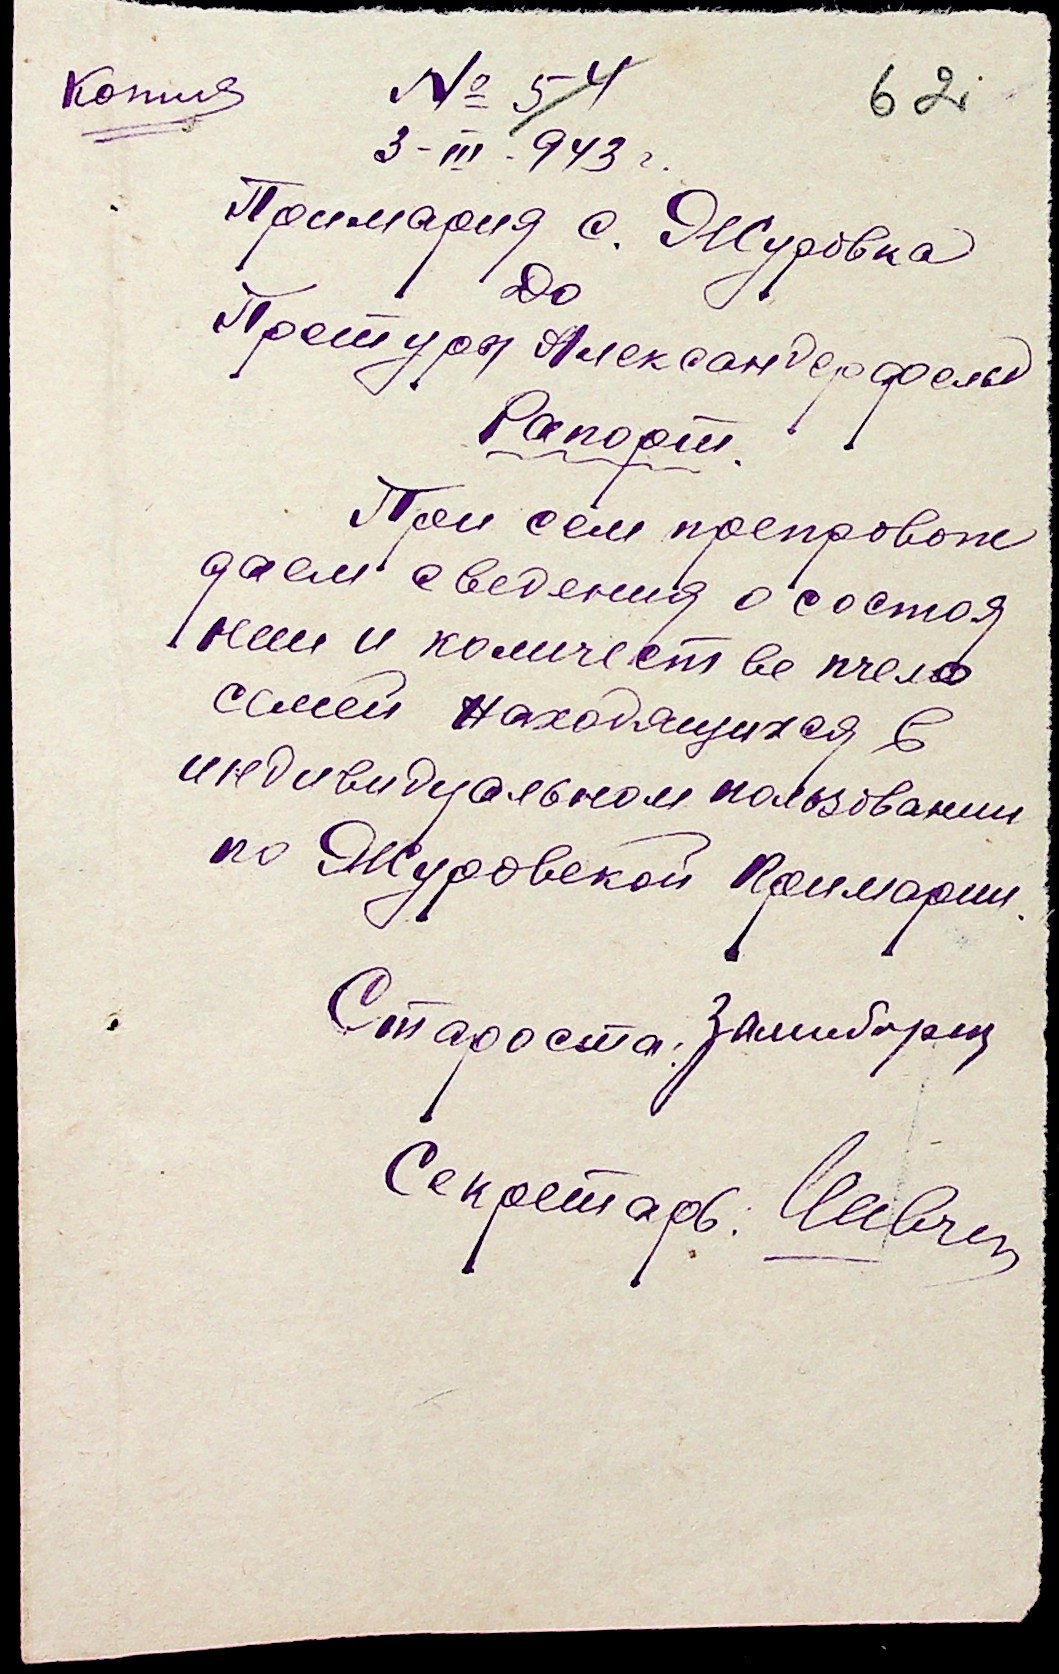 Копия
№ 54
62
3-III-943 г.
Примария с. Журовка
До
Претуры Александерфельд
Рапорт.
При сем препровож
даем сведения о состоя
нии и количестве пчело
семей находящихся в
индивидуальном пользовании
по Журовской Примарии.
Староста:
Секретарь: